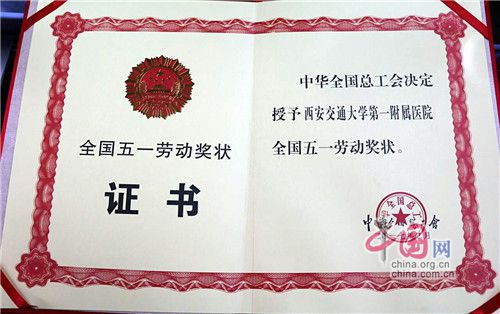 全国五一劳动奖状
证书
中华全国总工会决定
授予西安交通大学第一附属医院
全国五一劳动奖状。
中国网
china.org.cn
china.com.cn